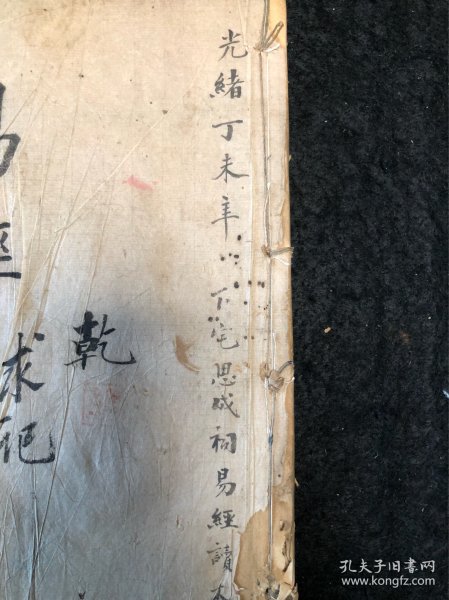 光緒丁未年下宅思成祠易經讀本
乾
易經求記
孔夫子旧书网
www.kongfz.com